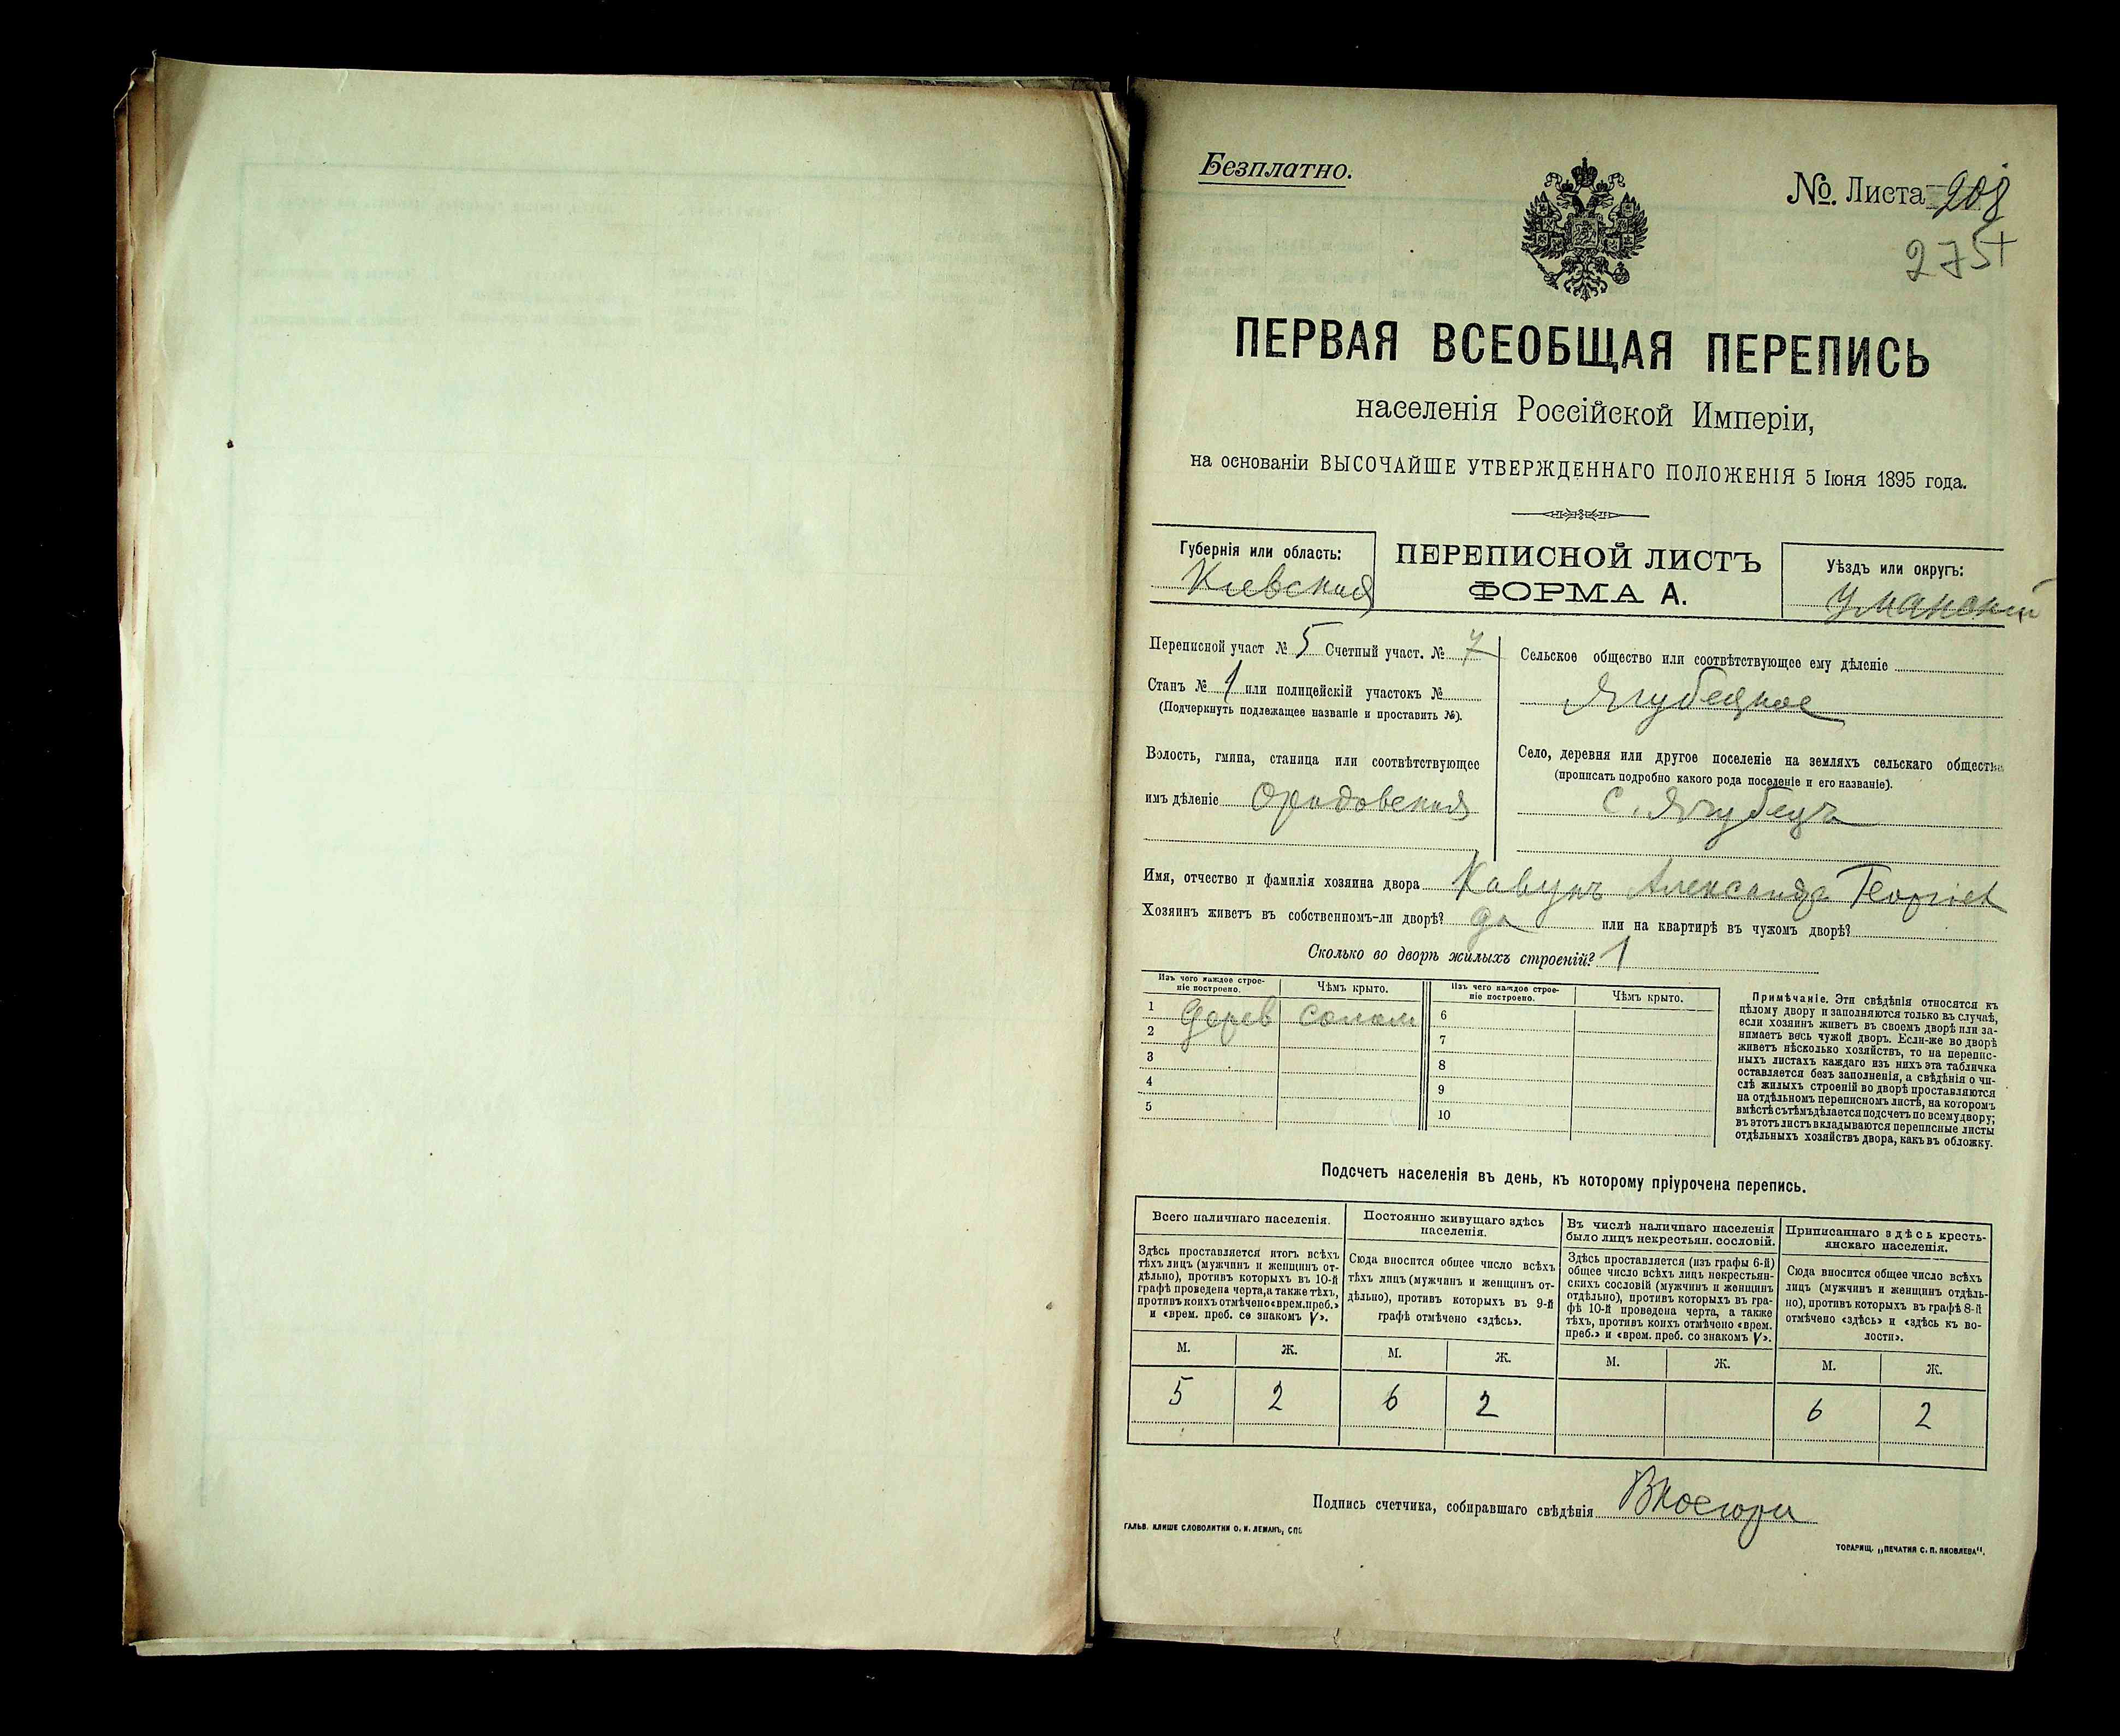 Безплатно.
№. Листа 208
275
ПЕРВАЯ ВСЕОБЩАЯ ПЕРЕПИСЬ
населенія Россійской Имперіи,
на основаніи ВЫСОЧАЙШЕ УТВЕРЖДЕННАГО ПОЛОЖЕНІЯ 5 Іюня 1895 года.
Губернія или область:
Кіевская
ПЕРЕПИСНОЙ ЛИСТЪ
ФОРМА А.
Уѣздъ или округъ:
Уманскій
Переписной участ № 5 Счетный участ. № 7
Станъ № 1 или полицейскій участокъ №
(Подчеркнуть подлежащее названіе и проставить №).
Волость, гмина, станица или соотвѣтствующее
имъ дѣленіе Орадовская
Сельское общество или соотвѣтствующее ему дѣленіе
Ягубецкое
Село, деревня или другое поселеніе на земляхъ сельскаго общества
(прописать подробно какого рода поселеніе и его названіе).
с. Ягубецъ
Имя, отчество и фамилія хозяина двора Кавунъ Александр Георгіев
Хозяинъ живетъ въ собственномъ-ли дворѣ? да или на квартирѣ въ чужомъ дворѣ?
Сколько во дворѣ жилыхъ строеній? 1
Изъ чего каждое строе-
ніе построено.
Чѣмъ крыто.
Изъ чего каждое строе-
ніе построено.
Чѣмъ крыто.
1 дерев солом 6
2 7
3 8
4 9
5 10
Примѣчаніе. Эти свѣдѣнія относятся къ
цѣлому двору и заполняются только въ случаѣ,
если хозяинъ живетъ въ своемъ дворѣ или за-
нимаетъ весь чужой дворъ. Если-же во дворѣ
живетъ нѣсколько хозяйствъ, то на перепис-
ныхъ листахъ каждаго изъ нихъ эта табличка
оставляется безъ заполненія, а свѣдѣнія о чи-
слѣ жилыхъ строеній во дворѣ проставляются
на отдѣльномъ переписномъ листѣ, на которомъ
вмѣстѣ съ тѣмъ дѣлается подсчетъ по всему двору;
въ этотъ листъ вкладываются переписные листы
отдѣльныхъ хозяйствъ двора, какъ въ обложку.
Подсчетъ населенія въ день, къ которому пріурочена перепись.
Всего наличнаго населенія.
Здѣсь проставляется итогъ всѣхъ
тѣхъ лицъ (мужчинъ и женщинъ от-
дѣльно), противъ которыхъ въ 10-й
графѣ проведена черта, а также тѣхъ,
противъ коихъ отмѣчено «врем. преб.»
и «врем. преб. со знакомъ V».
Постоянно живущаго здѣсь
населенія.
Сюда вносится общее число всѣхъ
тѣхъ лицъ (мужчинъ и женщинъ от-
дѣльно), противъ которыхъ въ 9-й
графѣ отмѣчено «здѣсь».
Въ числѣ наличнаго населенія
было лицъ некрестьян. сословій.
Здѣсь проставляется (изъ графы 6-й)
общее число всѣхъ лицъ некрестьян-
скихъ сословій (мужчинъ и женщинъ
отдѣльно), противъ которыхъ въ гра-
фѣ 10-й проведена черта, а также
тѣхъ, противъ коихъ отмѣчено «врем.
преб.» и «врем. преб. со знакомъ V».
Приписаннаго здѣсь кресть-
янскаго населенія.
Сюда вносится общее число всѣхъ
лицъ (мужчинъ и женщинъ отдѣль-
но), противъ которыхъ въ графѣ 8-й
отмѣчено «здѣсь» и «здѣсь къ во-
лости».
М. Ж. М. Ж. М. Ж. М. Ж.
5 2 6 2 6 2
Подпись счетчика, собиравшаго свѣдѣнія
ГАЛЬВ. КЛИШЕ СЛОВОЛИТНИ О. И. ЛЕМАНЪ, СПБ
ТОВАРИЩ. „ПЕЧАТНЯ С. П. ЯКОВЛЕВА".